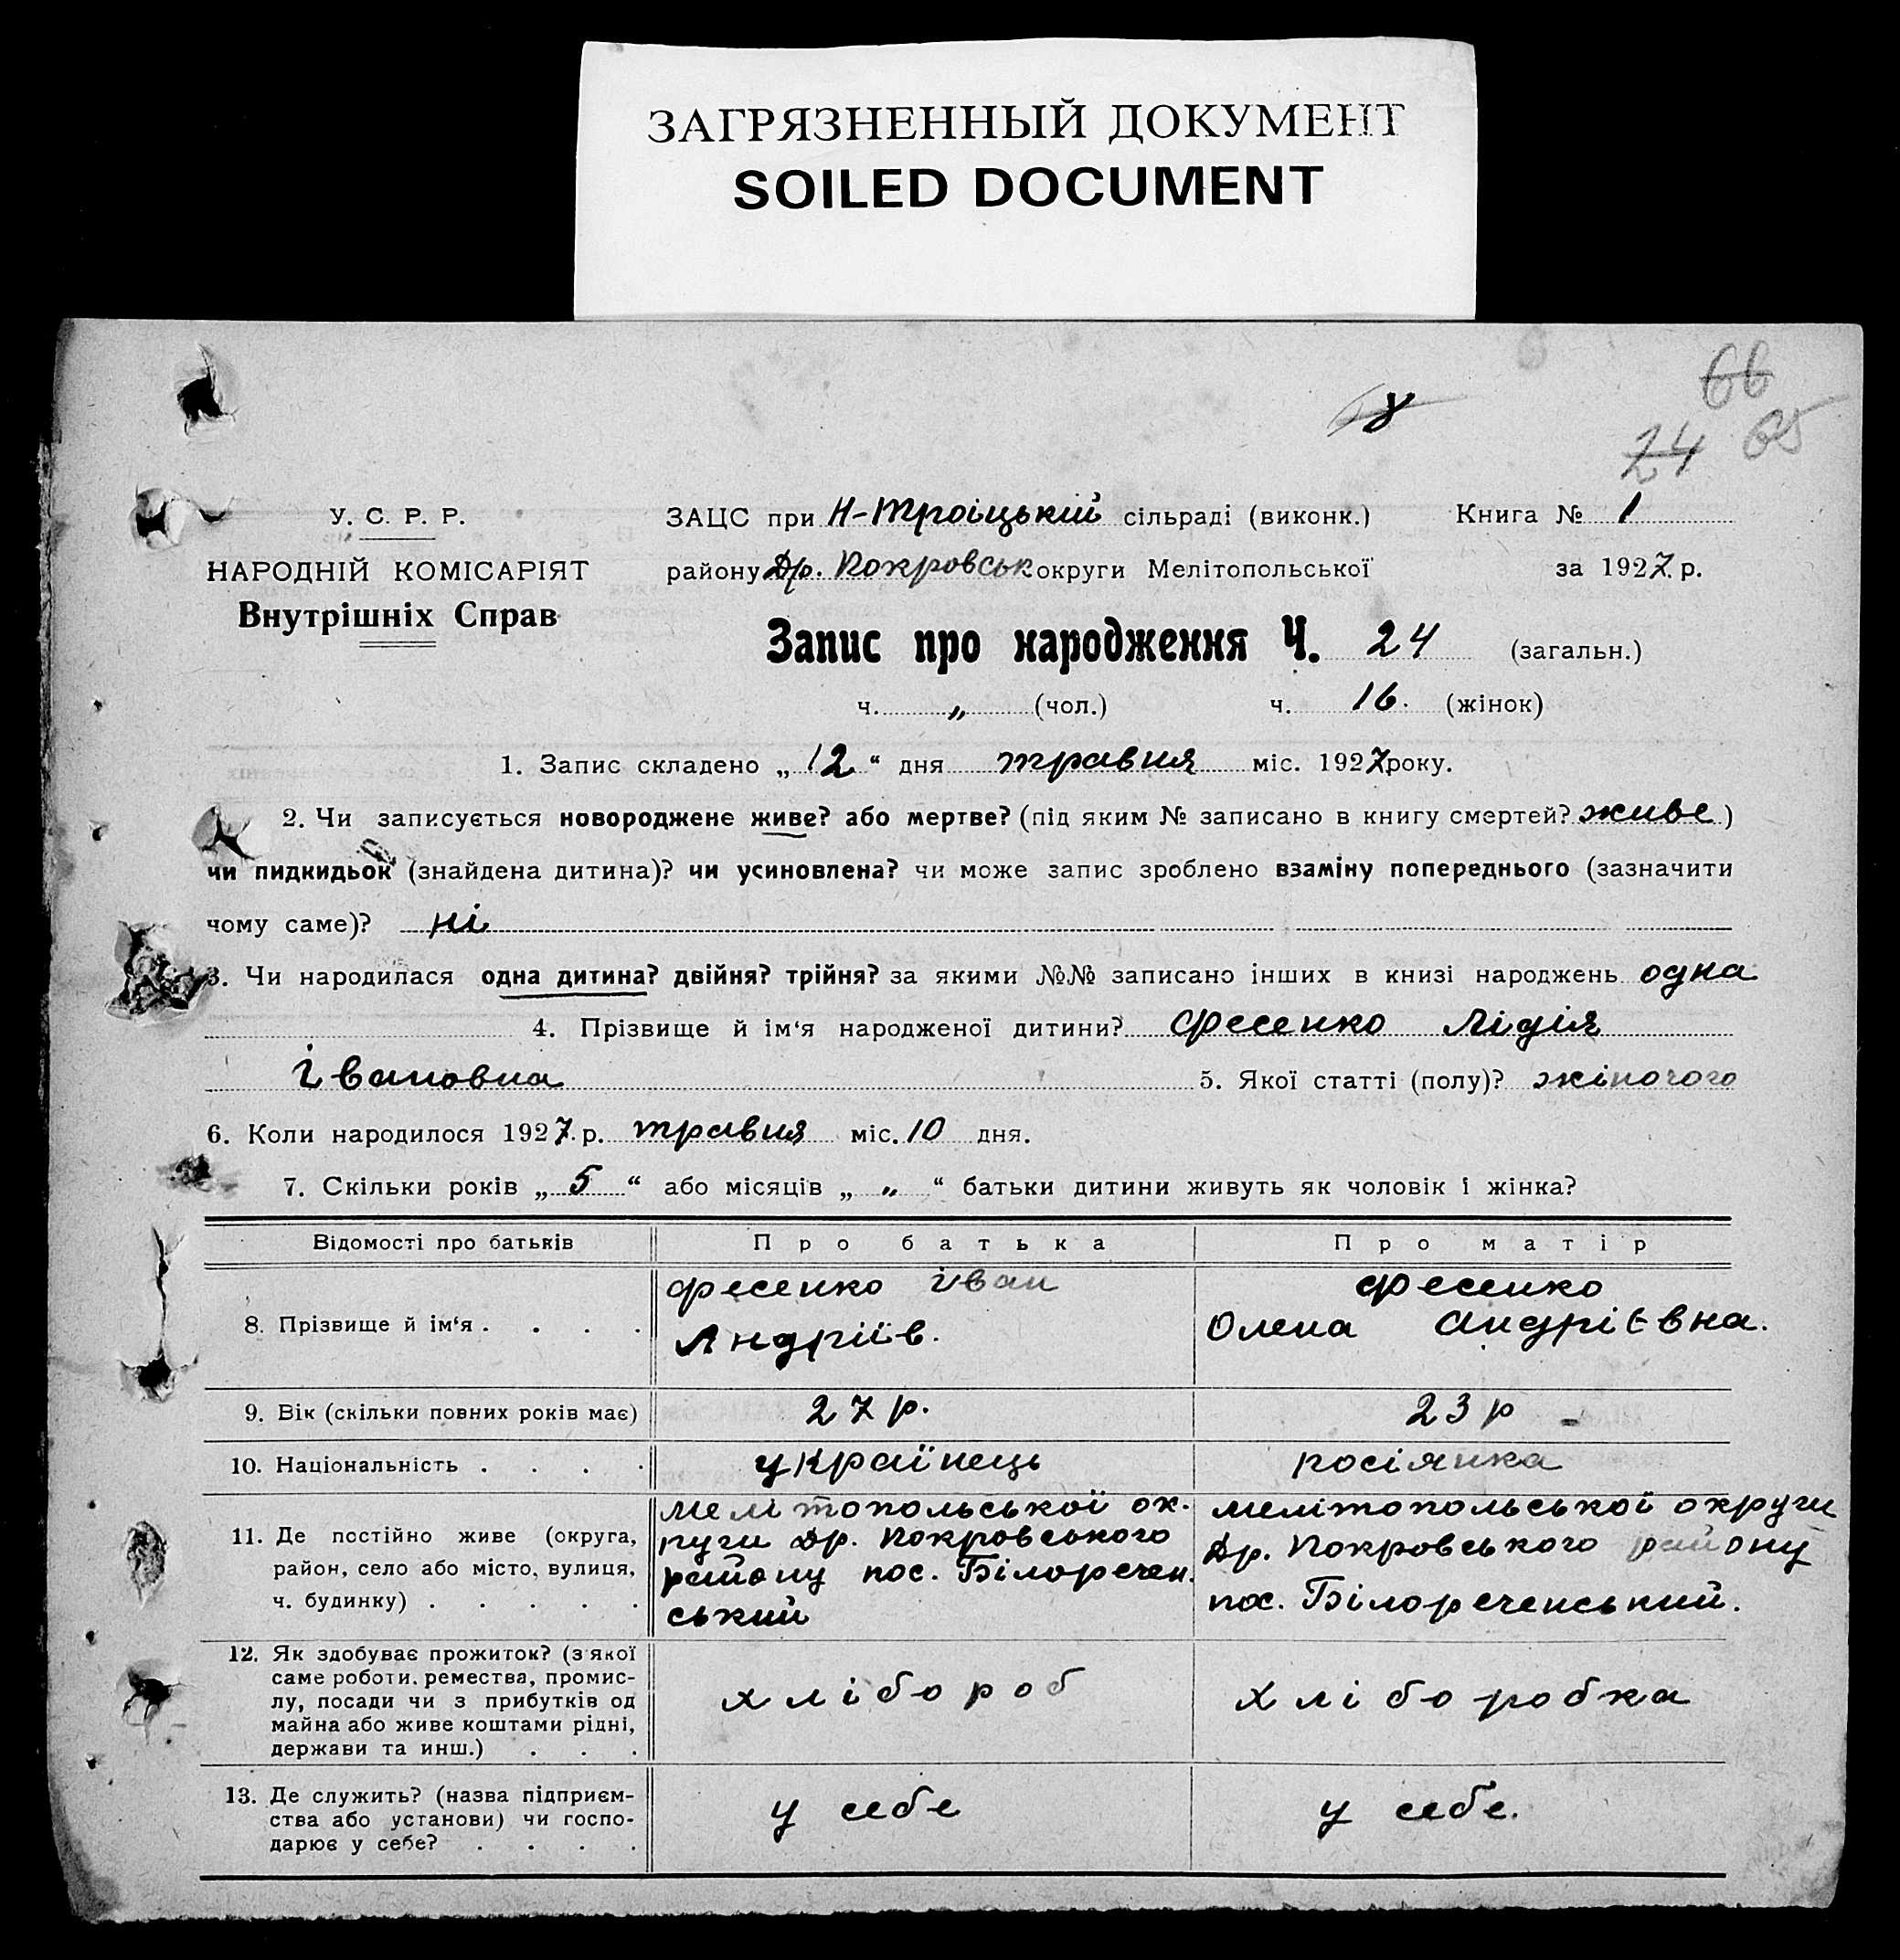 ЗАГРЯЗНЕННЫЙ ДОКУМЕНТ
SOILED DOCUMENT
66
24 65
У. С. Р. Р.
НАРОДНІЙ КОМІСАРІЯТ
Внутрішніх Справ
ЗАЦС при Н-Троіцькій сільраді (виконк.) Книга № 1
району Др. Покровськ округи Мелітопольської за 1927 р.
Запис про народження Ч. 24 (загальн.)
ч. „ (чол.) ч. 16. (жінок)
1. Запис складено „12“ дня травня міс. 1927 року.
2. Чи записується новороджене живе? або мертве? (під яким № записано в книгу смертей? живе)
чи пидкидьок (знайдена дитина)? чи усиновлена? чи може запис зроблено взаміну попереднього (зазначити
чому саме)? ні
3. Чи народилася одна дитина? двійня? трійня? за якими №№ записано інших в книзі народжень одна
4. Прізвище й ім‘я народженої дитини? Фесенко Лідія
Івановна 5. Якої статті (полу)? жіночого
6. Коли народилося 1927 р. травня міс. 10 дня.
7. Скільки років „5“ або місяців „ „ “ батьки дитини живуть як чоловік і жінка?
Відомості про батьків Про батька Про матір
8. Прізвище й ім‘я . . . .
Фесенко Іван
Андріїв.
Фесенко
Олена Андрієвна.
9. Вік (скільки повних років має) 27 р. 23 р
10. Національність . . . . українець росіянка
11. Де постійно живе (округа,
район, село або місто, вулиця,
ч. будинку) . . . . .
Мелітопольської ок.
руги Др. Покровського
району пос. Білоречен.
ський
Мелітопольської округи
Др. Покровського району
пос. Білореченський.
12. Як здобуває прожиток? (з якої
саме роботи, ремества, промис-
лу, посади чи з прибутків од
майна або живе коштами рідні,
держави та инш.) . . .
хлібороб
хліборобка
13. Де служить? (назва підприєм-
ства або установи) чи госпо-
дарює у себе? . . . .
у себе
у себе.